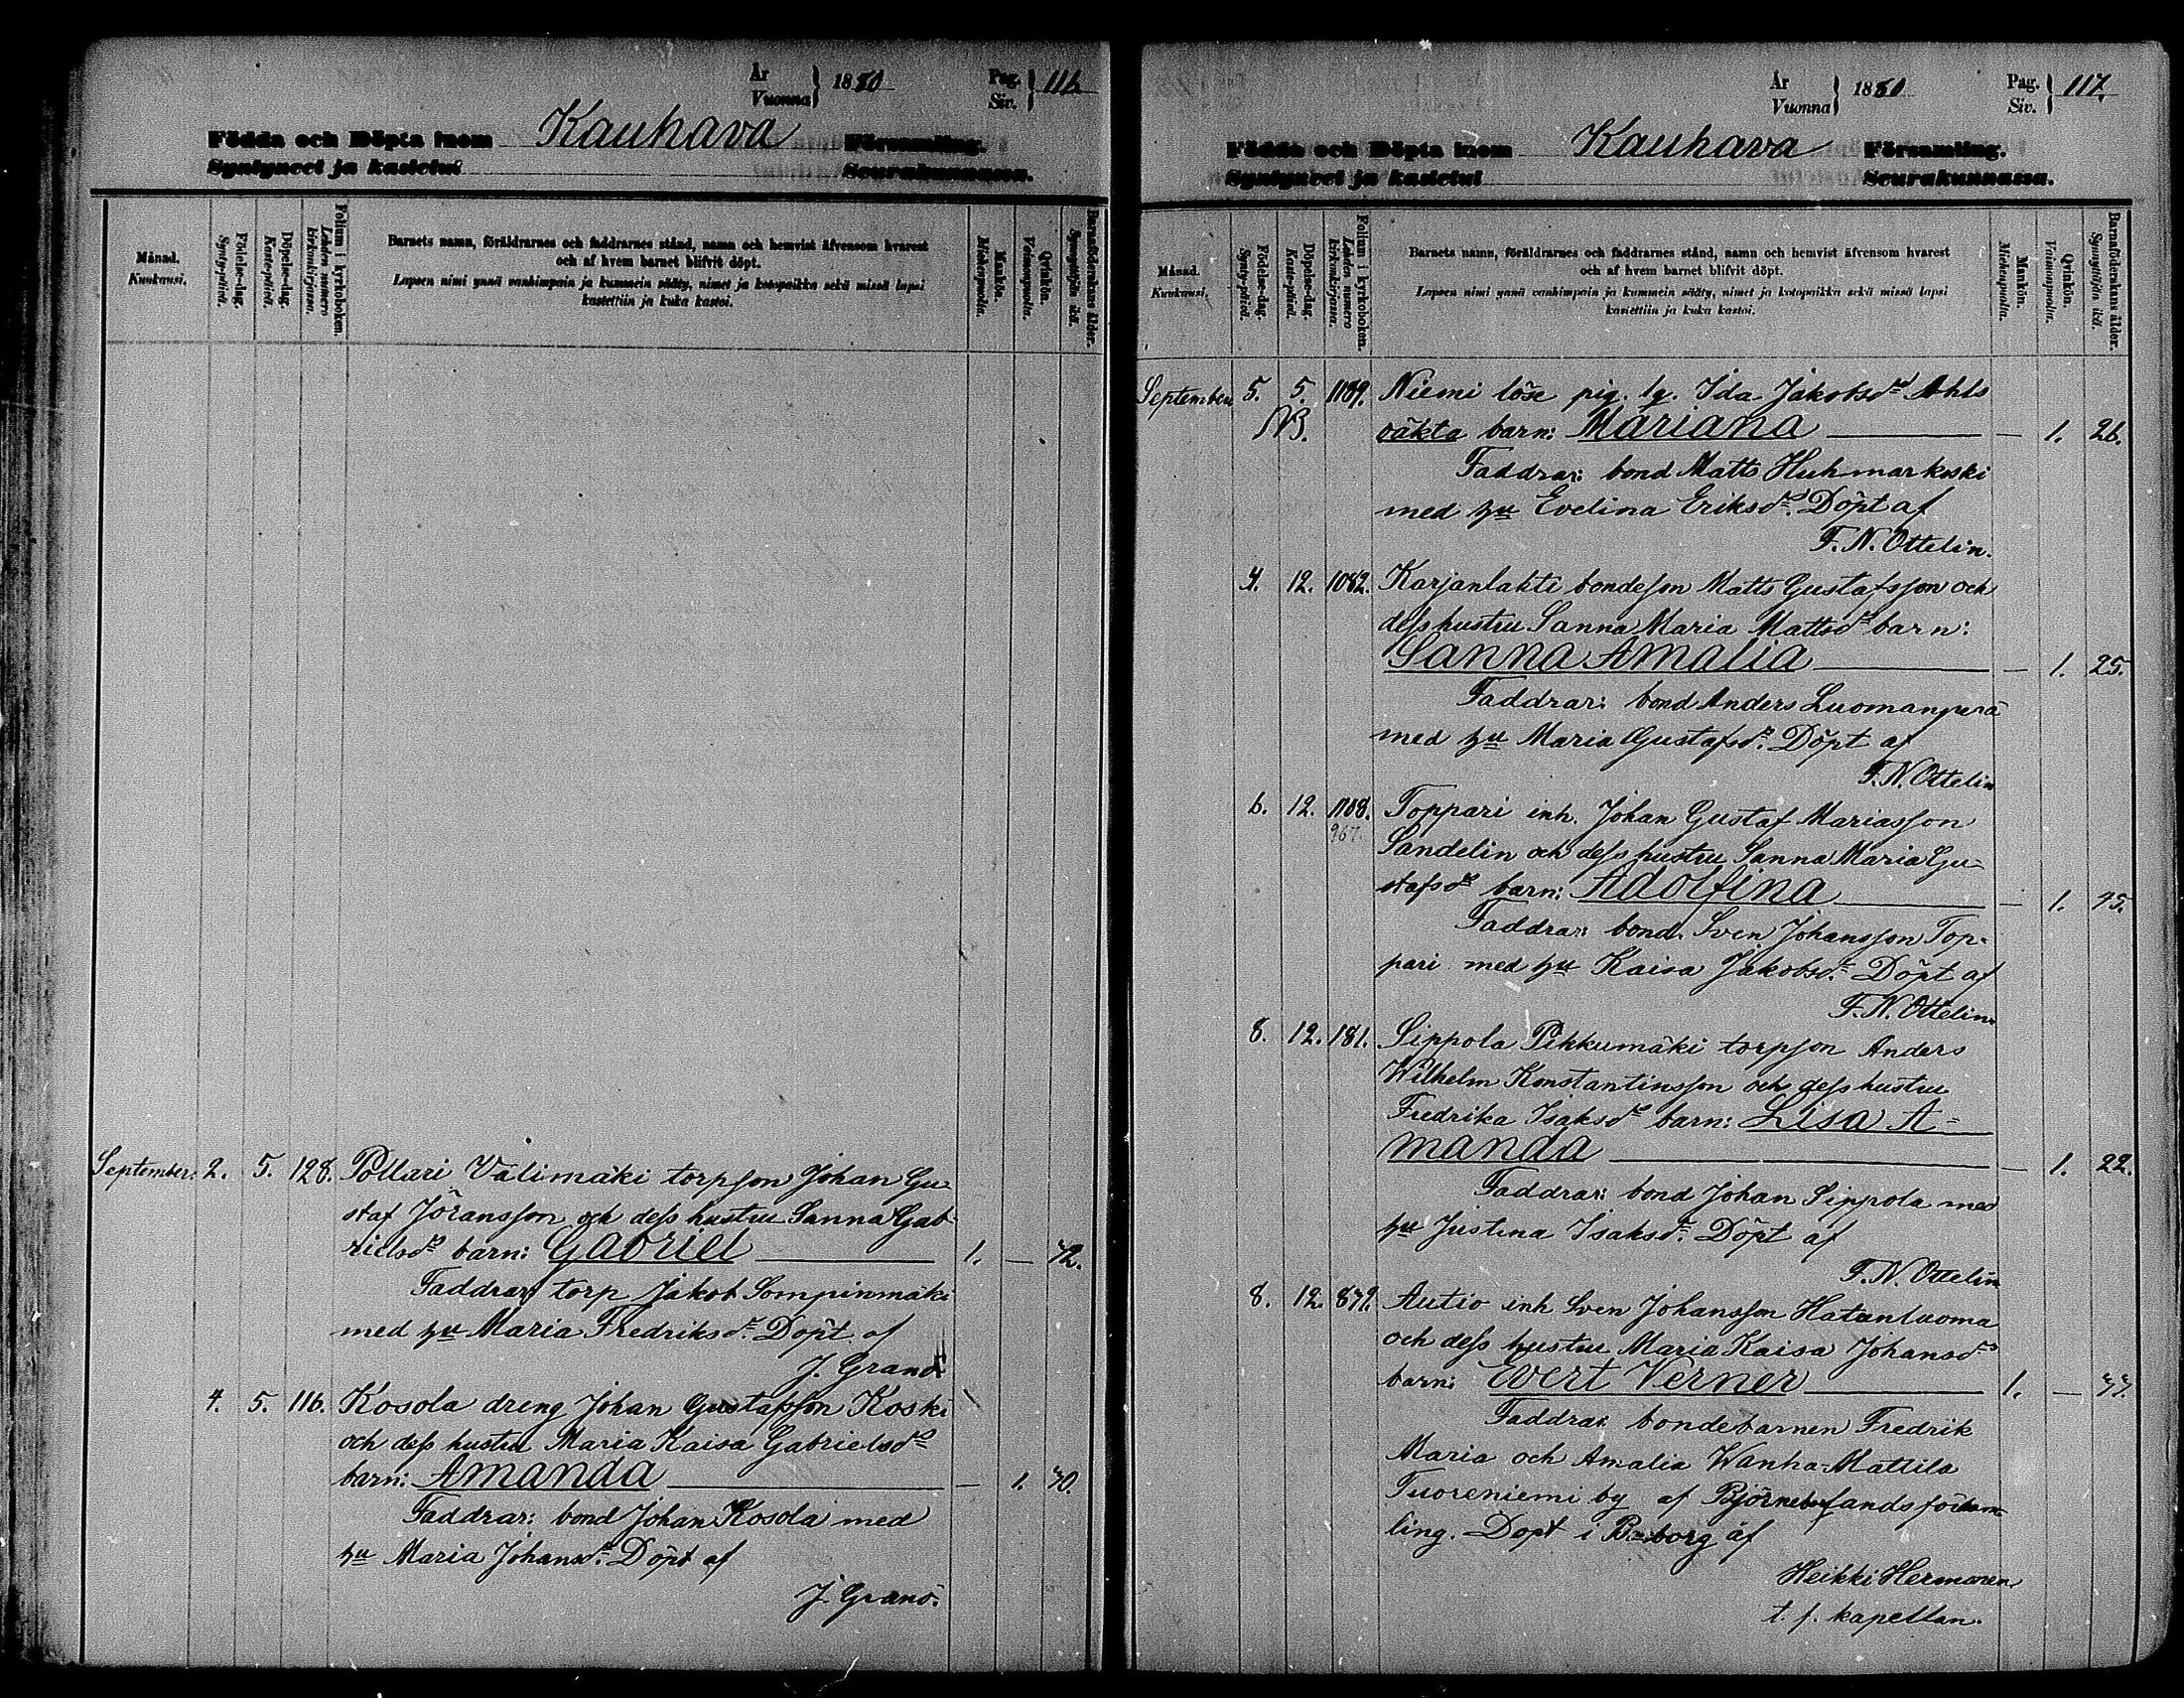 År
Vuonna } 1880 Pag.
Siv. } 116.
Födda och Döpta inom Kauhava Församling.
Syntyneet ja kastetut Seurakunnassa.
Månad.
Kuukausi.
Födelse-dag.
Synty-päivä.
Döpelse-dag.
Kaste-päivä.
Folium i kyrkoboken.
Lehden numero
kirkonkirjassa.
Barnets namn, föräldrarnes och faddrarnes stånd, namn och hemvist äfvensom hvarest
och af hvem barnet blifvit döpt.
Lapsen nimi ynnä vanhimpain ja kummein sääty, nimet ja kotopaikka sekä missä lapsi
kastettiin ja kuka kastoi.
Mankön.
Miehenpuolia.
Qvinkön.
Vaimonpuolia.
Barnaföderskans ålder.
Synnyttäjän ikä.
September. 2. 5. 128. Pollari Välimäki torpson Johan Gu-
staf Jöransson och dess hustru Sanna Gab-
rielsd:r barn: Gabriel 1. — 42.
Faddrar: torp Jakob Sompinmäki
med hu Maria Fredriksd:r. Döpt af
J. Granö
4. 5. 116. Kosola dreng Johan Gustafsson Koski
och dess hustru Maria Kaisa Gabrielsd:r
barn: Amanda — 1. 40.
Faddrar: bond Johan Kosola med
hu Maria Johansd:r. Döpt af
J. Granö.
År
Vuonna } 1880 Pag.
Siv. } 117.
Födda och Döpta inom Kauhava Församling.
Syntyneet ja kastetut Seurakunnassa.
Månad.
Kuukausi.
Födelse-dag.
Synty-päivä.
Döpelse-dag.
Kaste-päivä.
Folium i kyrkoboken.
Lehden numero
kirkonkirjassa.
Barnets namn, föräldrarnes och faddrarnes stånd, namn och hemvist äfvensom hvarest
och af hvem barnet blifvit döpt.
Lapsen nimi ynnä vanhimpain ja kummein sääty, nimet ja kotopaikka sekä missä lapsi
kastettiin ja kuka kastoi.
Mankön.
Miehenpuolia.
Qvinkön.
Vaimonpuolia.
Barnaföderskans ålder.
Synnyttäjän ikä.
September 5. 5. 1189. Niemi löse pig. Ida Jakobsd:r Ahls
NB. oäkta barn: Mariana — 1. 26.
Faddrar: bond Matts Huhmarkoski
med hu Evelina Eriksd:r. Döpt af
F. N. Ottelin.
4. 12. 1082. Karjanlahti bondeson Matts Gustafsson och
dess hustru Sanna Maria Mattsd:r barn:
Sanna Amalia — 1. 25.
Faddrar: bond Anders Luomanperä
med hu Maria Gustafsd:r. Döpt af
F. N. Ottelin
6. 12. 1108. Toppari inh. Johan Gustaf Mariasson
967. Sandelin och dess hustru Sanna Maria Gu-
stafsd:r barn: Adolfina — 1. 45.
Faddrar: bond. Sven Johansson Top-
pari med hu Kaisa Jakobsd:r. Döpt af
F. N. Ottelin
8. 12. 181. Sippola Pikkumäki torpson Anders
Wilhelm Konstantinsson och dess hustru
Fredrika Isaksd:r barn: Lisa A-
manda — 1. 22.
Faddrar: bond Johan Sippola med
hu Justina Isaksd:r. Döpt af
F. N. Ottelin
8. 12. Autio inh Sven Johansson Hatunluoma
och dess hustru Maria Kaisa Johansd:r
barn: Evert Verner 1. —
Faddrar: bondebarnen Fredrik
Maria och Amalia Wanha-Mattila
Tuoreniemi by af Björneb. landsförsam
ling. Döpt i B-borg af
Heikki Hermonen
t. f. kapellan.